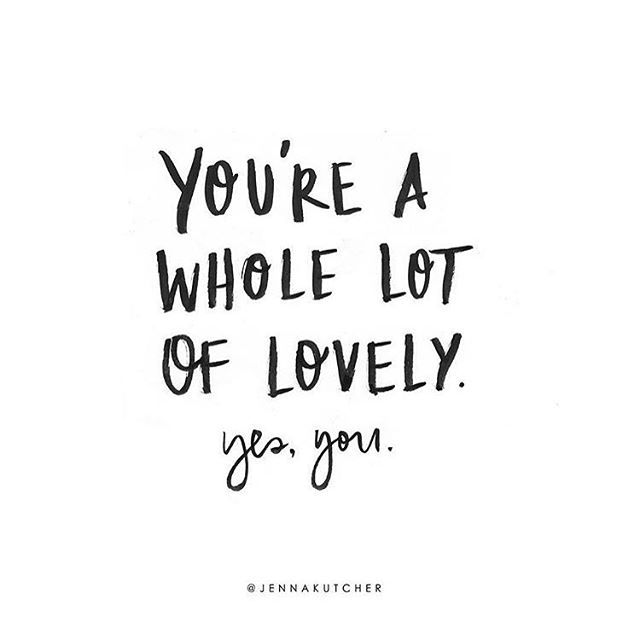 YOU'RE A
WHOLE LOT
OF LOVELY.
yes, you.
@JENNAKUTCHER